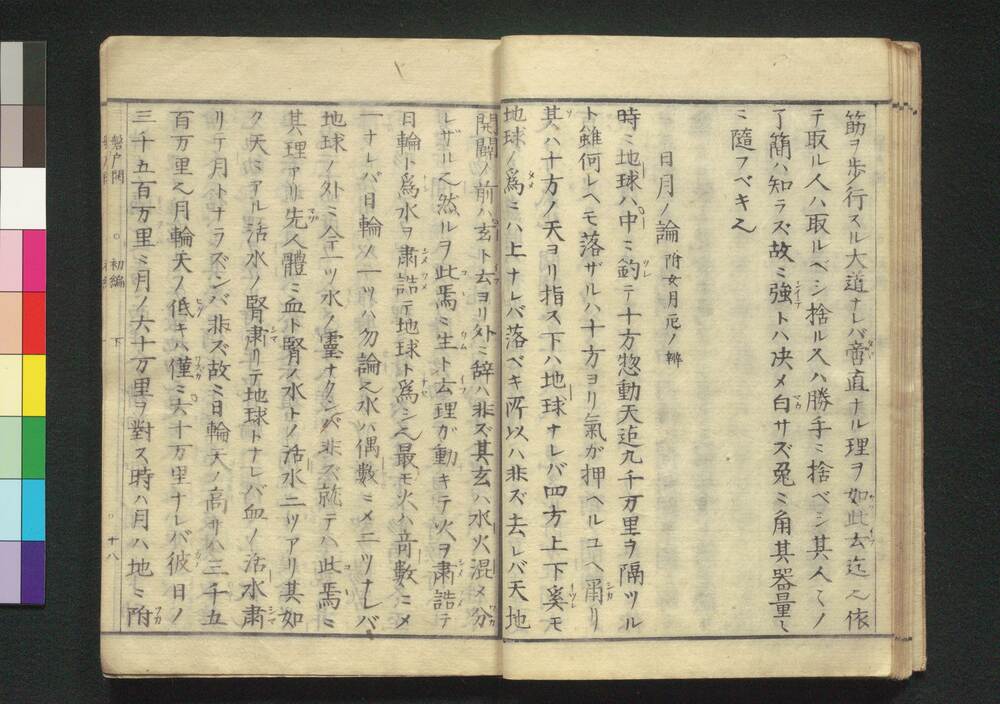 筋ヲ歩行スル大道ナレバ啻直ナル理ヲ如此去迄〜依
テ取ル人ハ取ルベシ捨ル人ハ勝手ミ捨ベシ其人〻ノ
了簡ハ知ラズ故ミ強トハ决メ白サズ兎ミ角其器量〻
ミ隨フベキ〜
日月ノ論 附女月厄ノ辨
時ミ地球ハ中ミ釣テ十方惣動天迄九千万里ヲ隔ツル
ト雖何レヘモ落ザルハ十方ヨリ氣が押ヘルユヘ
其ハ十方ノ天ヨリ指ス下ハ地球ナレバ四方上下奚モ
地球ノ為ミハ上ナレバ落ベキ所以ハ非ズ去レバ天地
開闢ノ前ハ玄ト云ヨリ外ミ辞ハ非ズ其玄ハ水火混メ分
レザル〜然ルヲ此焉ミ生ト云理が動キテ火ヲ肅詰テ
日輪ト為水ヲ肅詰テ地球ト為シ〜最モ火ハ竒數ミメ
一ナレバ日輪ノ一ツハ勿論〜水ハ偶數ミメ二ツナレバ
地球ノ外ミ今一ツ水ノ靈ナクンバ非ズ就テハ此焉ミ
其理アリ先人體ミ血ト腎ノ水トノ活水二ツアリ其如
ク天ミアル活水ノ腎肅リテ地球トナレバ血ノ活水肅
リテ月トナラズンバ非ズ故ミ日輪天ノ高サハ三千五
百万里〜月輪天ノ低キハ僅ミ六十万里ナレバ彼日ノ
三千五百万里ミ月ノ六十万里ヲ對ス時ハ月ハ地ミ附
磐戸開 ○ 初編 下 ○ 十八